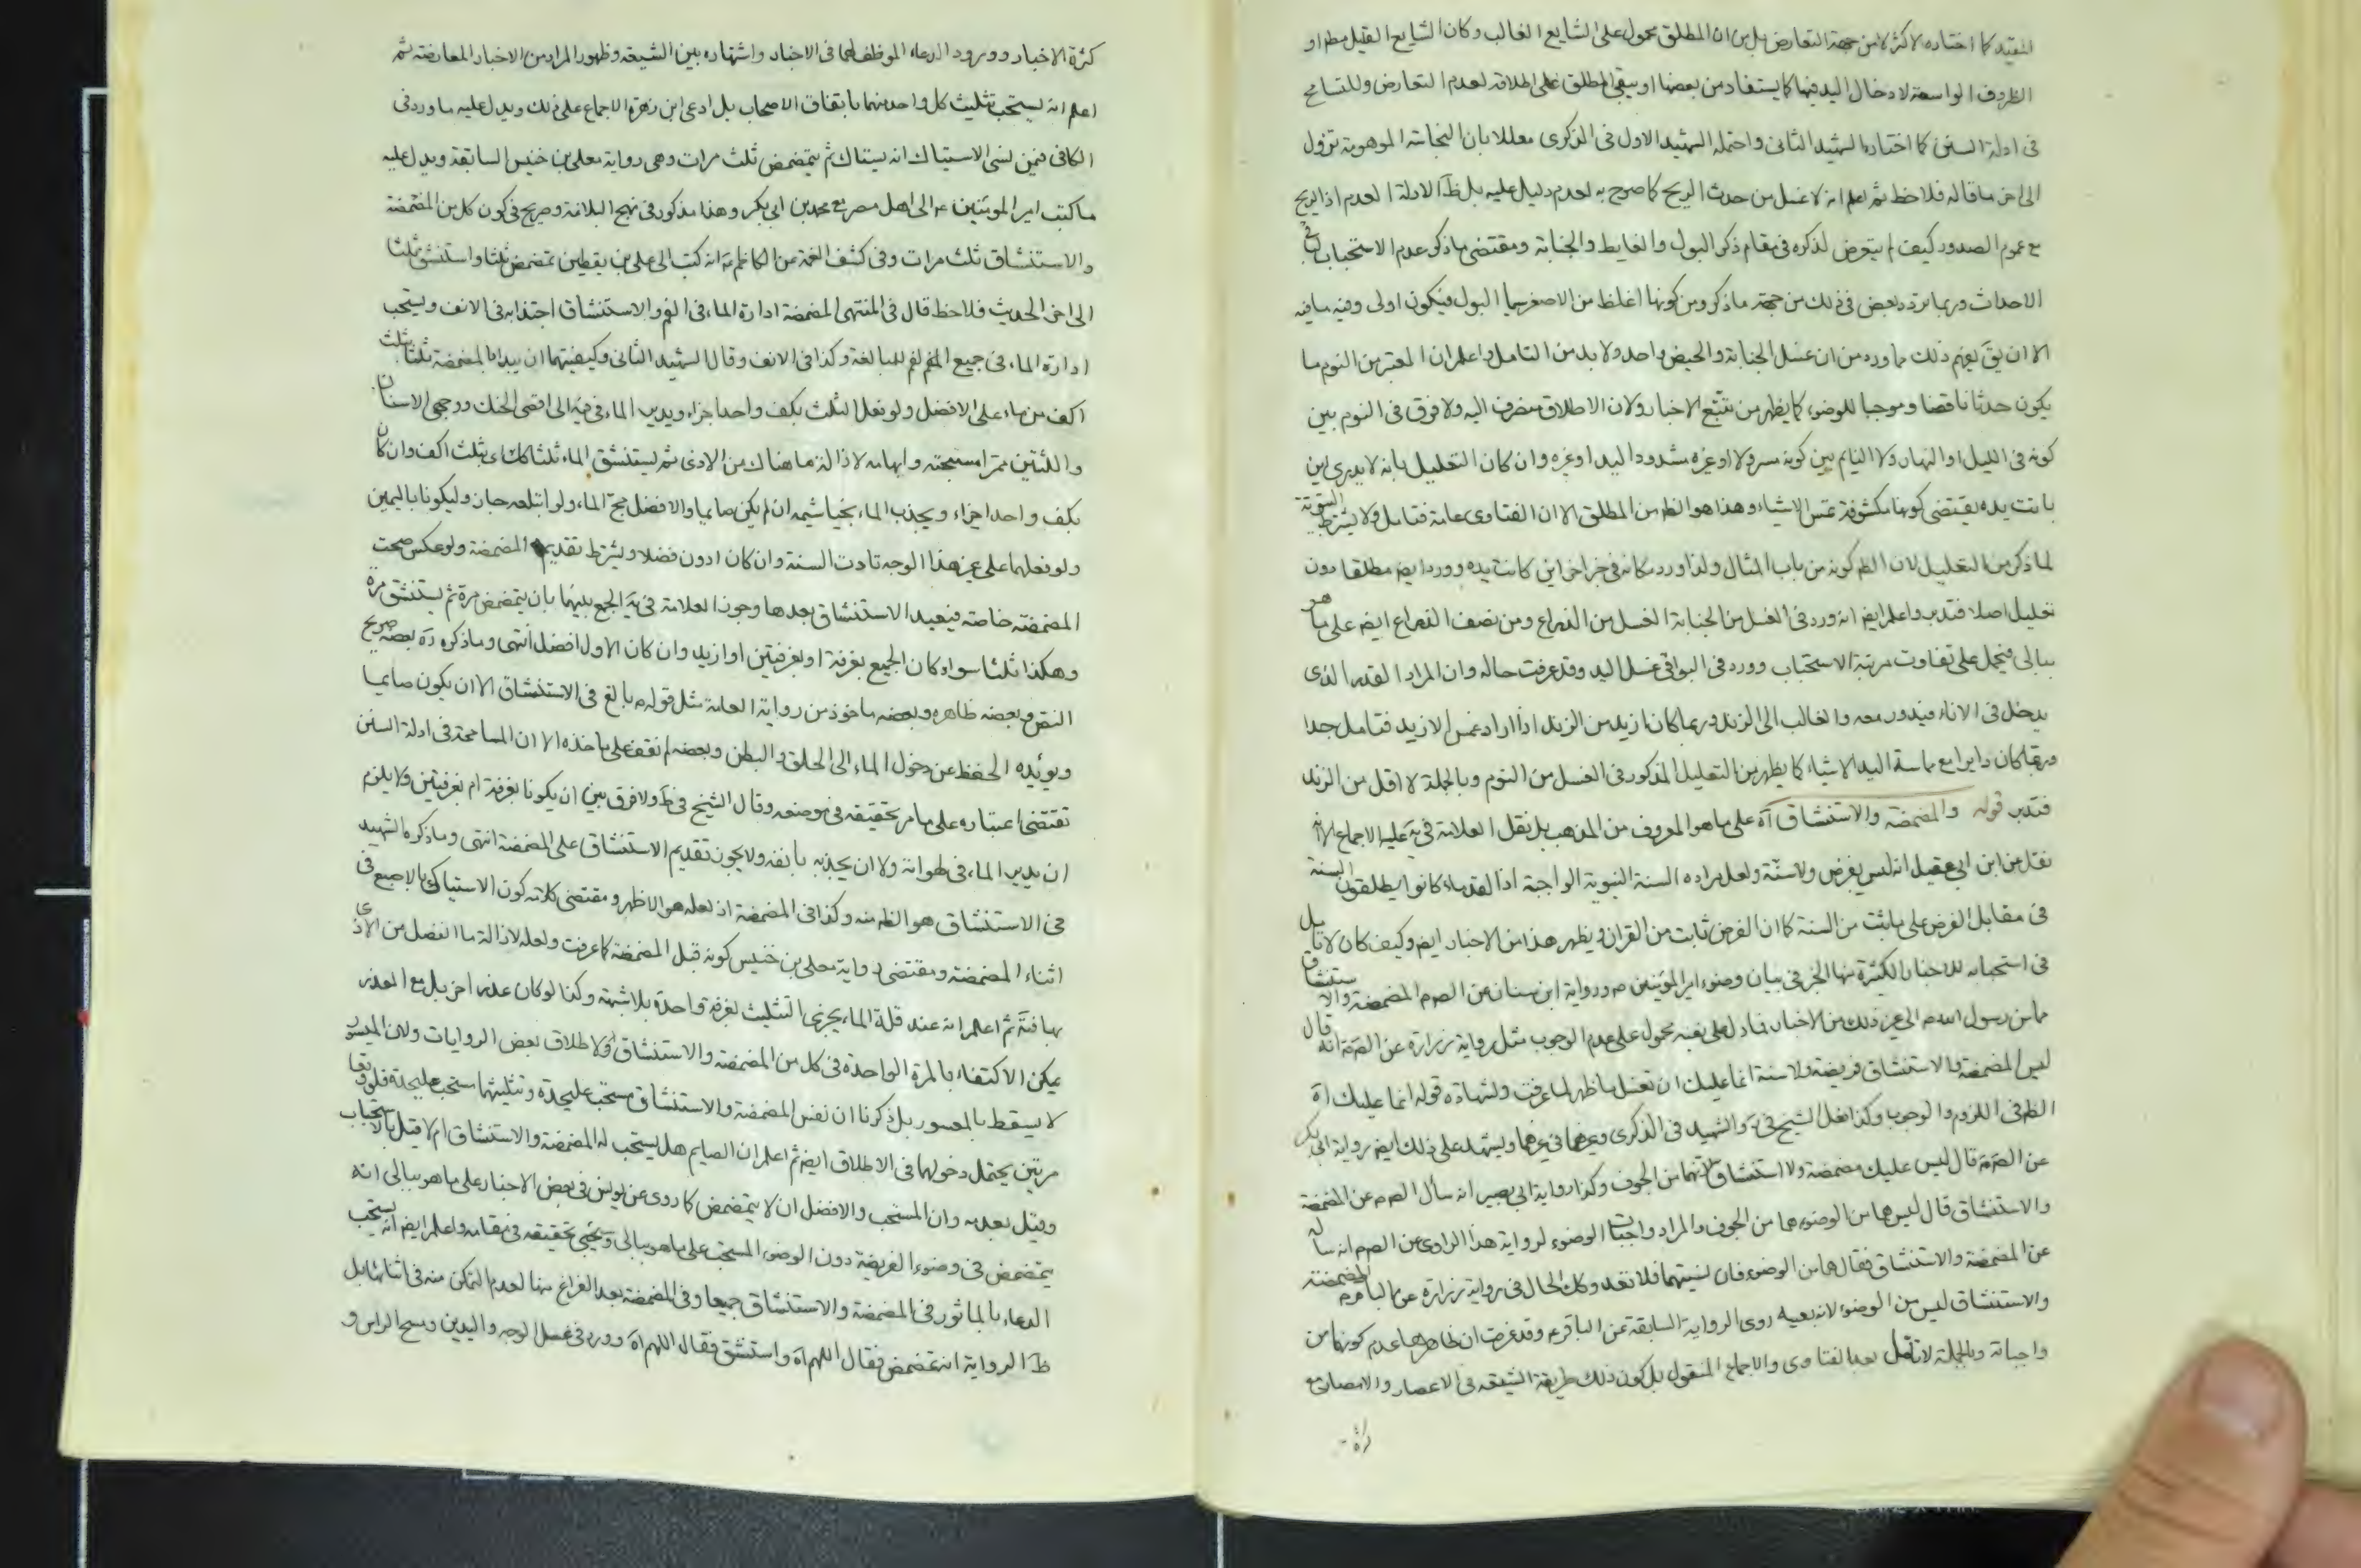 للتقييد كما اختاره الاكثر لا من جهة التعارض بل من ان المطلق محمول على الشايع الغالب وكان الشايع القليل مطلقا او
الظروف الواسعة لادخال اليد فيها كما يستفاد من بعضها او يبقى المطلق على اطلاقه لعدم التعارض وللتسامح
في ادلة السنن كما اختاره الشهيد الثاني واحتمله الشهيد الاول في الذكرى معللا بان النجاسة الموهومة تزول
الى اخر ما قاله فلاحظ ثم اعلم انه لا غسل من حدث الريح كما صرح به لعدم دليل عليه بل ظ الادلة العدم اذ الريح
مع عموم الصدور كيف لم يتعرض لذكره في مقام ذكر البول والغايط والجنابة ومقتضى ما ذكر عدم الاستحباب في باقي
الاحداث وربما تردد بعض في ذلك من جهة ما ذكر ومن كونها اغلظ من الاصغر سيما البول فيكون اولى وفيه ما فيه
الا ان يق يفهم ذلك مما ورد من ان غسل الجنابة والحيض واحد ولا بد من التامل واعلم ان المعتبر من النوم ما
يكون حدثا ناقضا وموجبا للوضوء كما يظهر من تتبع الاخبار ولان الاطلاق منصرف اليه ولا فرق في النوم بين
كونه في الليل او النهار ولا النايم بين كونه مسرولا او غيره مشدود اليد او غيره وان كان التعليل بانه لا يدري اين
باتت يده يقتضي كونها مكشوفة تمس الاشياء وهذا هو الظ من المطلق الا ان الفتاوى عامة فتامل ولا يشترط البيتوتة
لما ذكر من التعليل لان الظ كونه من باب المثال ولذا ورد مكانه في خبر اخر اين كانت يده وورد ايض مطلقا دون
تعليل اصلا فتدبر واعلم ايض انه ورد في الغسل من الجنابة الغسل من الذراع ومن نصف الذراع ايض على ما هو
ببالي فيحمل على تفاوت مرتبة الاستحباب وورد في البواقي غسل اليد وقد عرفت حاله وان المراد القدر الذي
يدخل في الاناء فيدور معه والغالب الى الزند وربما كان ازيد من الزند اذا اراد غمس الازيد فتامل جدا
وربما كان دايرا مع مماسة اليد الاشياء كما يظهر من التعليل المذكور في الغسل من النوم وبالجملة لا اقل من الزند
فتدبر قوله والمضمضة والاستنشاق اه على ما هو المعروف من المذهب بل نقل العلامة في يه عليه الاجماع الا انه
نقل من ابن ابي عقيل انه ليس بفرض ولا سنة ولعل مراده السنة النبوية الواجبة اذ القدماء كانوا يطلقون السنة
في مقابل الفرض على ما ثبت من السنة كما ان الفرض ثابت من القران ويظهر هذا من الاخبار ايض وكيف كان لا تامل
في استحبابه للاخبار الكثيرة منها الخبر في بيان وضوء امير المؤمنين ورواية ابن سنان عن الص م المضمضة والاستنشاق
مما سن رسول الله ص الى غير ذلك من الاخبار فما دل على نفيه محمول على عدم الوجوب مثل رواية زرارة عن الص م انه قال
ليس المضمضة والاستنشاق فريضة ولا سنة انما عليك ان تغسل ما ظهر لما عرفت ولشهادة قوله انما عليك اه
الظ في اللزوم والوجوب وكذا فعل الشيخ في والشهيد في الذكرى وغيرهما في غيرهما ويشهد على ذلك ايض رواية ابي بكر
عن الص قال ليس عليك مضمضة ولا استنشاق لانهما من الجوف وكذا رواية ابي بصير انه سال الص م عن المضمضة
والاستنشاق قال ليس هما من الوضوء هما من الجوف والمراد واجبات الوضوء لرواية هذا الراوي عن الص م انه ساله
عن المضمضة والاستنشاق فقال هما من الوضوء فان نسيتهما فلا تعد وكك الحال في رواية زرارة عن الباقر م المضمضة
والاستنشاق ليس من الوضوء لانه بعينه روى الرواية السابقة عن الباقر م وقد عرفت ان ظاهرها عدم كونها من
واجباته وبالجملة لا تامل بعد الفتاوى والاجماع المنقول بل كون ذلك طريقة الشيعة في الاعصار والامصار مع
كثرة
كثرة الاخبار وورود الدعاء الموظف لهما في الاخبار واشتهاره بين الشيعة وظهور المراد من الاخبار المعارضة ثم
اعلم انه يستحب تثليث كل واحد منهما باتفاق الاصحاب بل ادعى ابن زهرة الاجماع على ذلك ويدل عليه ما ورد في
الكافي فيمن نسي الاستياك انه يستاك ثم يتمضمض ثلث مرات وهي رواية معلى بن خنيس السابقة ويدل عليه
ما كتب امير المؤمنين م الى اهل مصر مع محمد بن ابي بكر وهذا مذكور في نهج البلاغة وصريح في كون كل من المضمضة
والاستنشاق ثلث مرات وفي كشف الغمة عن الكاظم م انه كتب الى علي بن يقطين تمضمض ثلثا واستنشق ثلثا
الى اخر الحديث فلاحظ قال في المنتهى المضمضة ادارة الماء في الفم والاستنشاق اجتذابه في الانف ويستحب
ادارة الماء في جميع الفم للمبالغة وكذا في الانف وقال الشهيد الثاني وكيفيتهما ان يبدا بالمضمضة ثلثا بثلث
اكف من ماء على الافضل ولو فعل الثلث بكف واحد اجزاء ويدير الماء في فيه الى اقصى الحنك ووجهي الاسنان
واللثتين ممرا مسبحته وابهامه لازالة ما هناك من الاذى ثم يستنشق الماء ثلثا كك اي بثلث اكف وان كان
بكف واحد اجزاء ويجذب الماء بخياشيمه ان لم يكن صايما والافضل مج الماء ولو ابتلعه جاز وليكونا باليمين
ولو فعلهما على غير هذا الوجه تادت السنة وان كان ادون فضلا ويشترط تقديم المضمضة ولو عكس صحت
المضمضة خاصة فيعيد الاستنشاق بعدها وجوز العلامة في يه الجمع بينهما بان يتمضمض مرة ثم يستنشق مرة
وهكذا ثلثا سواء كان الجميع بغرفة او بغرفتين او ازيد وان كان الاول افضل انتهى وما ذكره ره بعضه صريح
النص وبعضه ظاهره وبعضه ماخوذ من رواية العامة مثل قوله م بالغ في الاستنشاق الا ان يكون صايما
ويؤيده الحفظ عن دخول الماء الى الحلق والبطن وبعضه لم نقف على ماخذه الا ان المسامحة في ادلة السنن
تقتضي اعتباره على ما مر تحقيقه في موضعه وقال الشيخ في ط ولا فرق بين ان يكونا بغرفة ام بغرفتين ولا يلزم
ان يدير الماء في لهواته ولا ان يجذبه بانفه ولا يجوز تقديم الاستنشاق على المضمضة انتهى وما ذكره الشهيد
في الاستنشاق هو الظ منه وكذا في المضمضة اذ لعله هو الاظهر ومقتضى كلامه كون الاستياك بالاصبع في
اثناء المضمضة ومقتضى رواية معلى بن خنيس كونه قبل المضمضة كما عرفت ولعله لازالة ما انفصل من الاذى
بها فتة ثم اعلم انه عند قلة الماء يجزى التثليث بغرفة واحدة بلا شبهة وكذا لو كان عذر اخر بل مع العذر
يمكن الاكتفاء بالمرة الواحدة في كل من المضمضة والاستنشاق لاطلاق بعض الروايات ولان الميسور
لا يسقط بالمعسور بل ذكرنا ان نفس المضمضة والاستنشاق مستحب عليحدة وتثليثهما مستحب عليحدة فلو وقعا
مرتين يحتمل دخولهما في الاطلاق ايض ثم اعلم ان الصايم هل يستحب له المضمضة والاستنشاق ام لا قيل بالاستحباب
وقيل بعدمه وان المستحب والافضل ان لا يتمضمض كما روى عن يونس في بعض الاخبار على ما هو ببالي انه
يتمضمض في وضوء الفريضة دون الوضوء المستحب على ما هو ببالي وسيجيء تحقيقه في مقامه واعلم ايض انه يستحب
الدعاء بالماثور في المضمضة والاستنشاق جميعا وفي المضمضة بعد الفراغ منها لعدم التمكن منه في اثنائها بل
ظ الرواية انه تمضمض فقال اللهم اه واستنشق فقال اللهم اه وورد في غسل الوجه واليدين ومسح الراس و